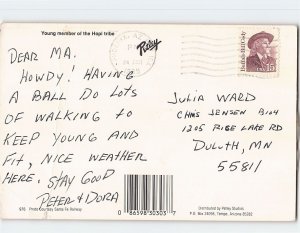 Young member of the Hopi tribe
Petley
Buffalo Bill Cody
USA 15
DEAR MA.
HOWDY! HAVING
A BALL DO LOTS
OF WALKING TO
KEEP YOUNG AND
FIT, NICE WEATHER
HERE. STAY GOOD
PETER & DORA
JULIA WARD
1205 RICE LAKE RD
DULUTH, MN
55811
Photo Courtesy Santa Fe Railway
0 86598 30303 7
Distributed by Petley Studios
Tempe, Arizona 85282